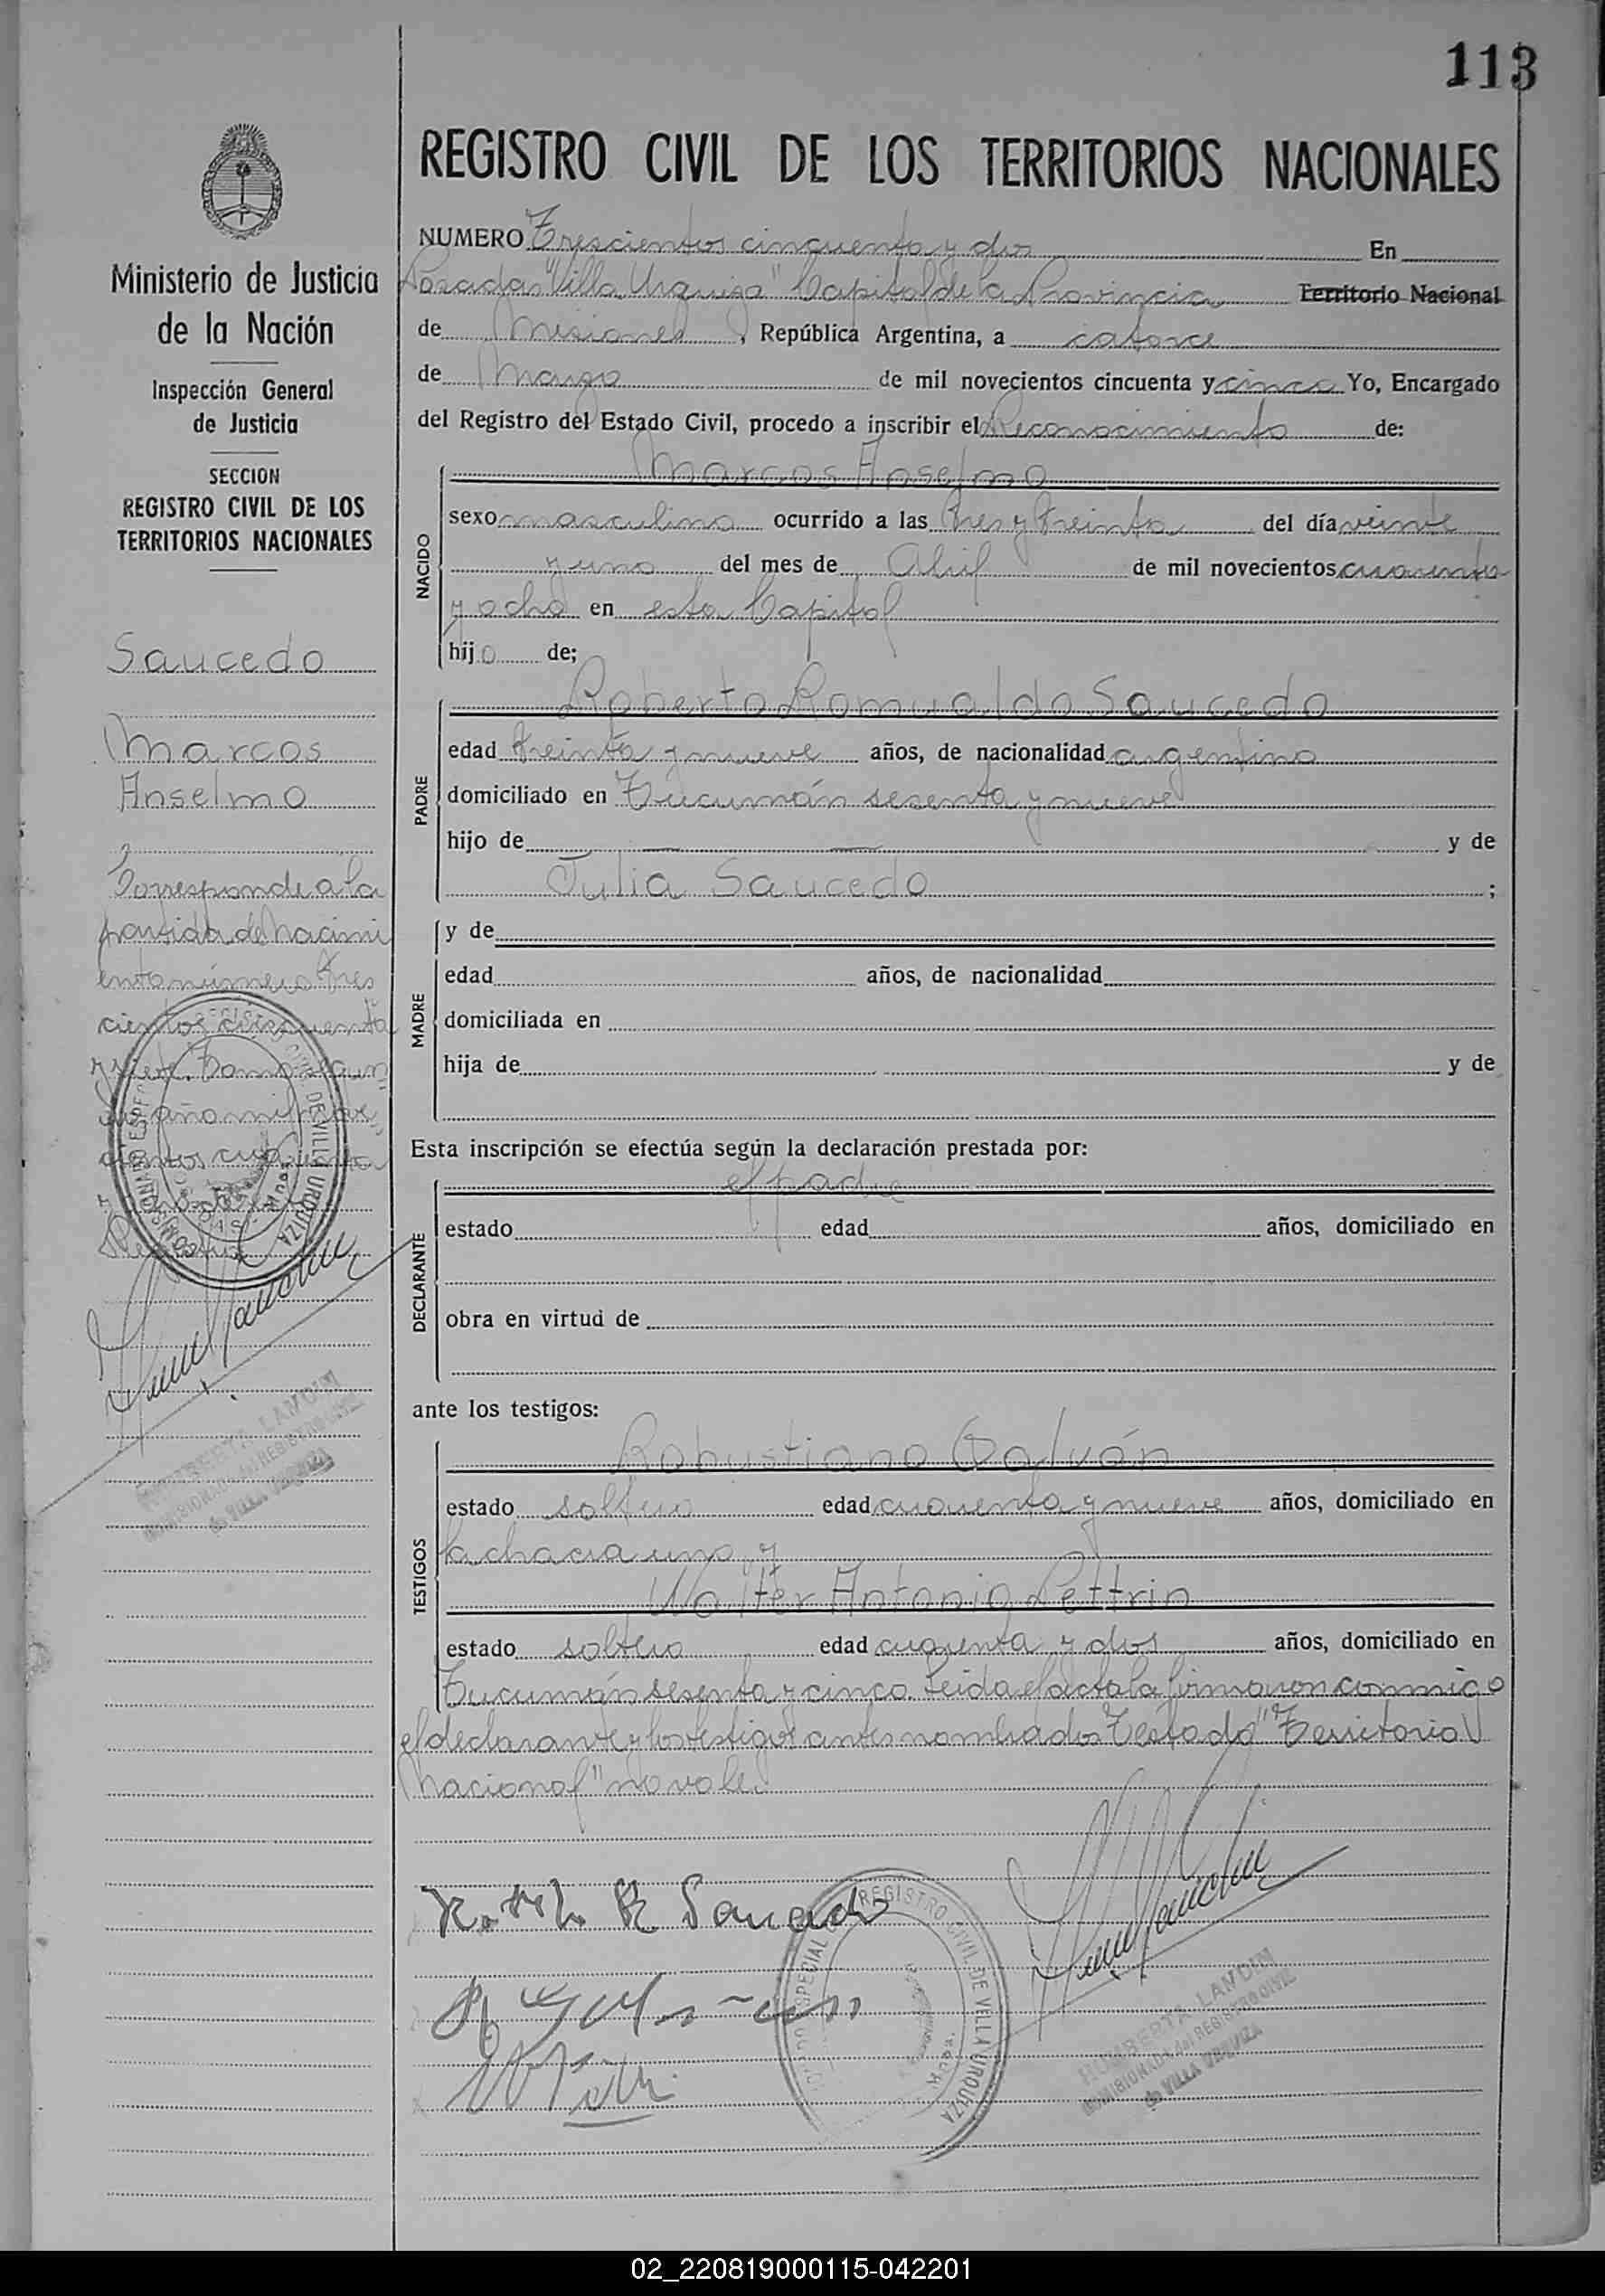 113
REGISTRO CIVIL DE LOS TERRITORIOS NACIONALES
Ministerio de Justicia
de la Nación
Inspección General
de Justicia
SECCION
REGISTRO CIVIL DE LOS
TERRITORIOS NACIONALES
Saucedo
Marcos
Anselmo
Corresponde a la
partida de Nacimi
ento número tres
cientos cincuenta
y siete. Tomo
año mil nove
cientos cuarenta
y ocho
NUMERO Trescientos cincuenta y dos En
Posadas "Villa Urquiza" Capital de la Provincia Territorio Nacional
de Misiones, República Argentina, a catorce
de Marzo de mil novecientos cincuenta y cinco Yo, Encargado
del Registro del Estado Civil, procedo a inscribir el Reconocimiento de:
NACIDO
Marcos Anselmo
sexo masculino ocurrido a las tres y treinta del día veinte
y uno del mes de Abril de mil novecientos cuarenta
y ocho en esta Capital
hijo de;
PADRE
Roberto Romualdo Saucedo
edad treinta y nueve años, de nacionalidad argentino
domiciliado en Tucumán sesenta y nueve
hijo de — — y de
Julia Saucedo ;
MADRE
y de
edad años, de nacionalidad
domiciliada en
hija de y de
Esta inscripción se efectúa según la declaración prestada por:
DECLARANTE
el padre
estado edad años, domiciliado en
obra en virtud de
ante los testigos:
TESTIGOS
Robustiano Galván
estado soltero edad cuarenta y nueve años, domiciliado en
la chacra uno y
Walter Antonio Pettrin
estado soltero edad cuarenta y dos años, domiciliado en
Tucumán sesenta y cinco. Leida el acta la firmaron conmigo
el declarante y los testigos antes nombrados Testado "Territorio
Nacional" no vale.
REGISTRO CIVIL DE VILLA URQUIZA
HUMBERTA LANDIM
COMISIONADA del REGISTRO CIVIL
de VILLA URQUIZA
02_220819000115-042201